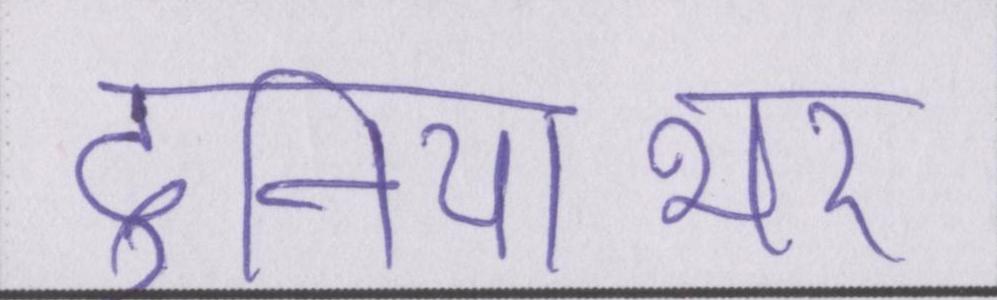 दुनिया भर